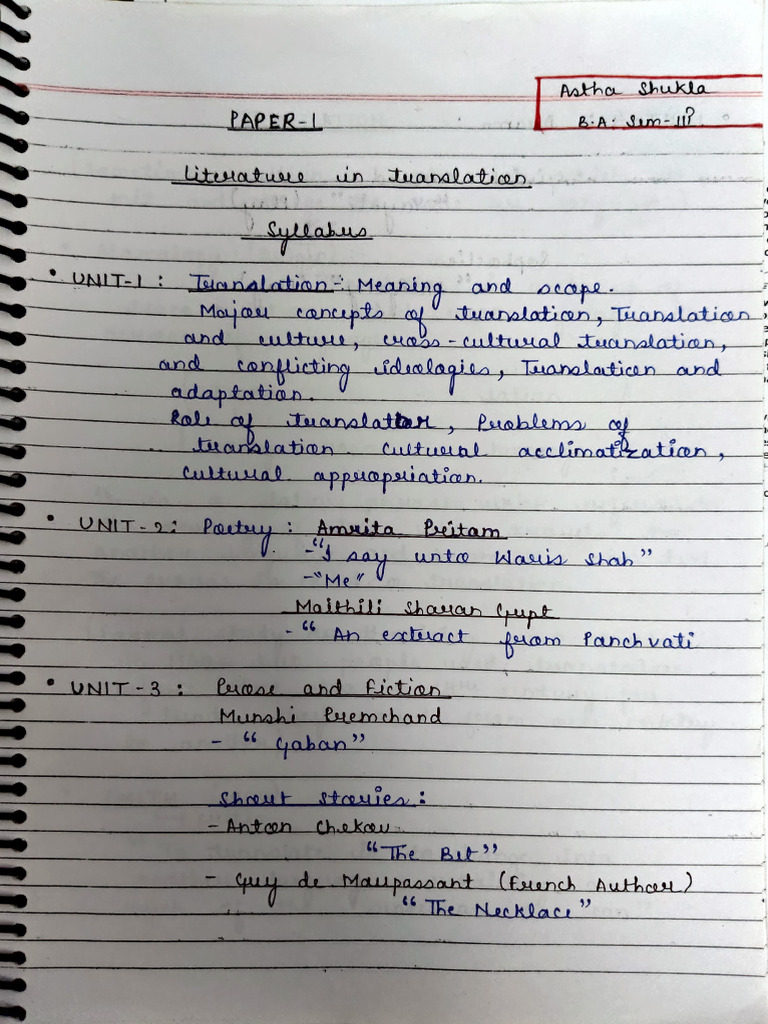 Astha Shukla
B.A: Sem-III
PAPER-1
Literature in translation
Syllabus
• UNIT-1: Translation:- Meaning and scope.
Major concepts of translation, Translation
and culture, cross-cultural translation,
and conflicting ideologies, Translation and
adaptation.
Role of translator, Problems of
translation cultural acclimatization,
cultural appropriation.
• UNIT-2: Poetry: Amrita Pritam
-"I say unto Waris Shah"
-"Me"
Maithili Sharan Gupt
- "An extract from Panchvati
• UNIT-3: Prose and Fiction
Munshi Premchand
- "Gaban"
Short stories:
- Anton Chekov
"The Bet"
- Guy de Maupassant (French Author)
"The Necklace"